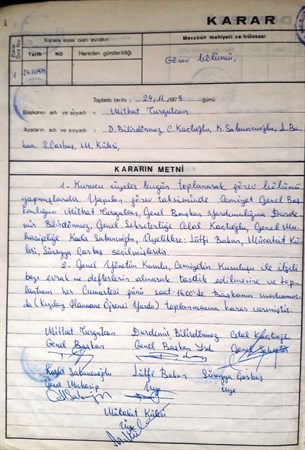 KARAR
Karara esas olan evrakın
Mevzuun mahiyeti ve hülasası
Karar Sıra No.
Tarih
NO
Nereden gönderildiği
24.11.1975
Görev bölümü,
Toplantı tarihi : 24.11.1975 günü
Başkanın adı ve soyadı : Mithat Turgutcan
Azaların adı ve soyadı : D. Bilirdönmez, C. Kaclıoğlu, K. Sabuncuoğlu, L. Ba-
kan, S. Çarbaş, M. Külsi,
KARARIN METNİ
1. Kurucu üyeler bugün toplanarak görev bölümü
yapmışlardır. Yapılan görev taksiminde Cemiyet Genel Baş-
kanlığına Mithat Turgutcan, Genel Başkan Yardımcılığına Durde-
mir Bilirdönmez, Genel Sekreterliğe Celal Kaclıoğlu, Genel Mu-
hasipliğe Sabuncuoğlu, Üyeliklere Lütfi Bakan, Mücahit Kül-
si, Süreyya Çarbaş seçilmişlerdir.
2. Genel Yönetim Kurulu, Cemiyetin Kuruluşu ile ilgili
bazı evrak ve defterlerin alınarak tasdik edilmesine ve top-
lantının her Cumartesi günü saat 14.00'de
da (Kızılay Öğrenci Yurdu) toplanmasına karar vermiştir.
Mithat Turgutcan Durdemir Bilirdönmez Celal Kaclıoğlu
Genel Başkan Genel Başkan Yrd. Genel Sekreter
Sabuncuoğlu Lütfi Bakan Süreyya Çarbaş
Genel Muhasip Üye Üye
Mücahit Külsi
Üye